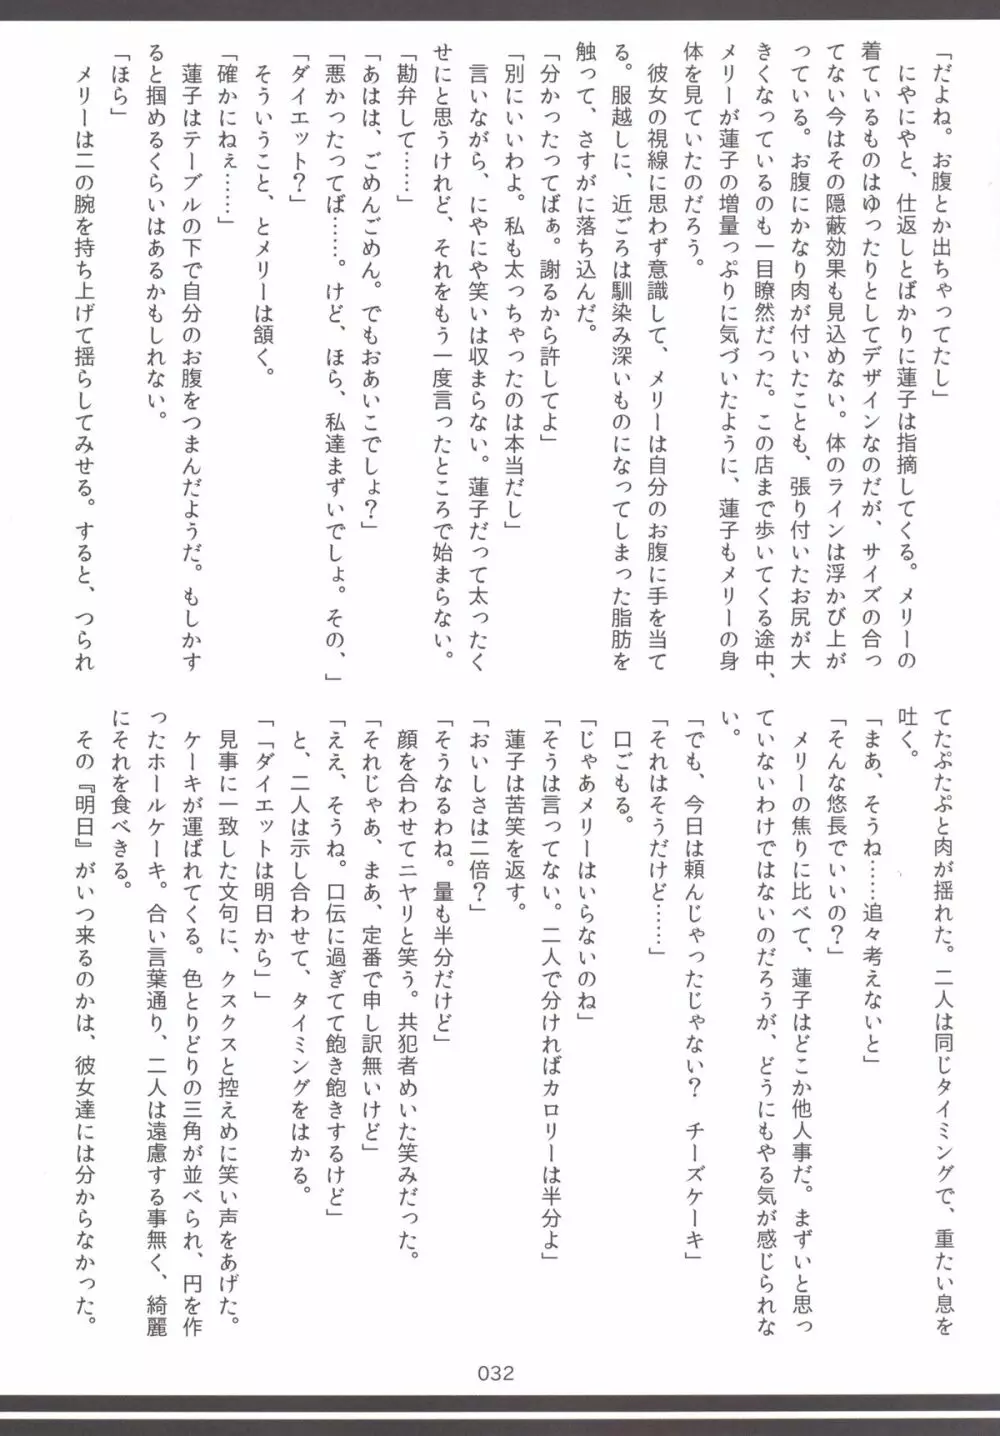 「だよね。お腹とか出ちゃってたし」
　にやにやと、仕返しとばかりに蓮子は指摘してくる。メリーの
着ているものはゆったりとしてデザインなのだが、サイズの合っ
てない今はその隠蔽効果も見込めない。体のラインは浮かび上が
っている。お腹にかなり肉が付いたことも、張り付いたお尻が大
きくなっているのも一目瞭然だった。この店まで歩いてくる途中、
メリーが蓮子の増量っぷりに気づいたように、蓮子もメリーの身
体を見ていたのだろう。
　彼女の視線に思わず意識して、メリーは自分のお腹に手を当て
る。服越しに、近ごろは馴染み深いものになってしまった脂肪を
触って、さすがに落ち込んだ。
「分かったってばぁ。謝るから許してよ」
「別にいいわよ。私も太っちゃったのは本当だし」
　言いながら、にやにや笑いは収まらない。蓮子だって太ったく
せにと思うけれど、それをもう一度言ったところで始まらない。
「勘弁して……」
「あはは、ごめんごめん。でもおあいこでしょ？」
「悪かったってば……。けど、ほら、私達まずいでしょ。その、」
「ダイエット？」
　そういうこと、とメリーは頷く。
「確かにねぇ……」
　蓮子はテーブルの下で自分のお腹をつまんだようだ。もしかす
ると掴めるくらいはあるかもしれない。
「ほら」
　メリーは二の腕を持ち上げて揺らしてみせる。すると、つられ
てたぷたぷと肉が揺れた。二人は同じタイミングで、重たい息を
吐く。
「まあ、そうね……追々考えないと」
「そんな悠長でいいの？」
　メリーの焦りに比べて、蓮子はどこか他人事だ。まずいと思っ
ていないわけではないのだろうが、どうにもやる気が感じられな
い。
「でも、今日は頼んじゃったじゃない？　チーズケーキ」
「それはそうだけど……」
　口ごもる。
「じゃあメリーはいらないのね」
「そうは言ってない。二人で分ければカロリーは半分よ」
　蓮子は苦笑を返す。
「おいしさは二倍？」
「そうなるわね。量も半分だけど」
　顔を合わせてニヤリと笑う。共犯者めいた笑みだった。
「それじゃあ、まあ、定番で申し訳無いけど」
「ええ、そうね。口伝に過ぎてて飽き飽きするけど」
　と、二人は示し合わせて、タイミングをはかる。
「「ダイエットは明日から」」
　見事に一致した文句に、クスクスと控えめに笑い声をあげた。
　ケーキが運ばれてくる。色とりどりの三角が並べられ、円を作
ったホールケーキ。合い言葉通り、二人は遠慮する事無く、綺麗
にそれを食べきる。
　その『明日』がいつ来るのかは、彼女達には分からなかった。
032